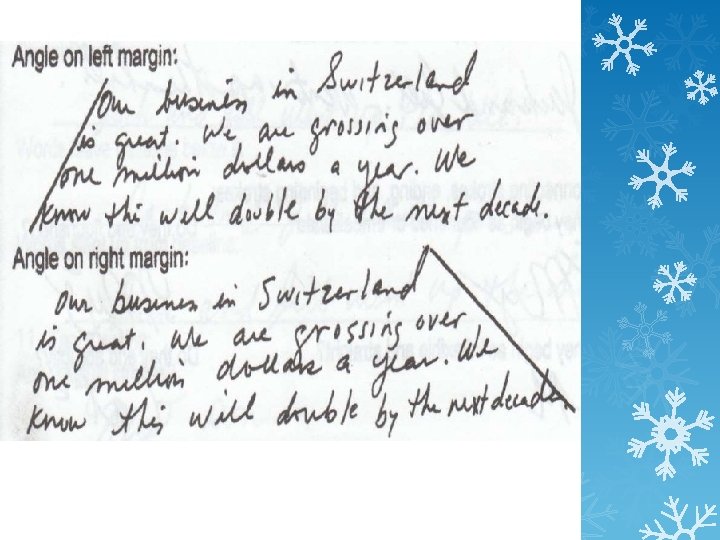 Angle on left margin:
Our business in Switzerland
is great. We are grossing over
one million dollars a year. We
know this will double by the next decade.
Angle on right margin:
Our business in Switzerland
is great. We are grossing over
one million dollars a year. We
know this will double by the next decade